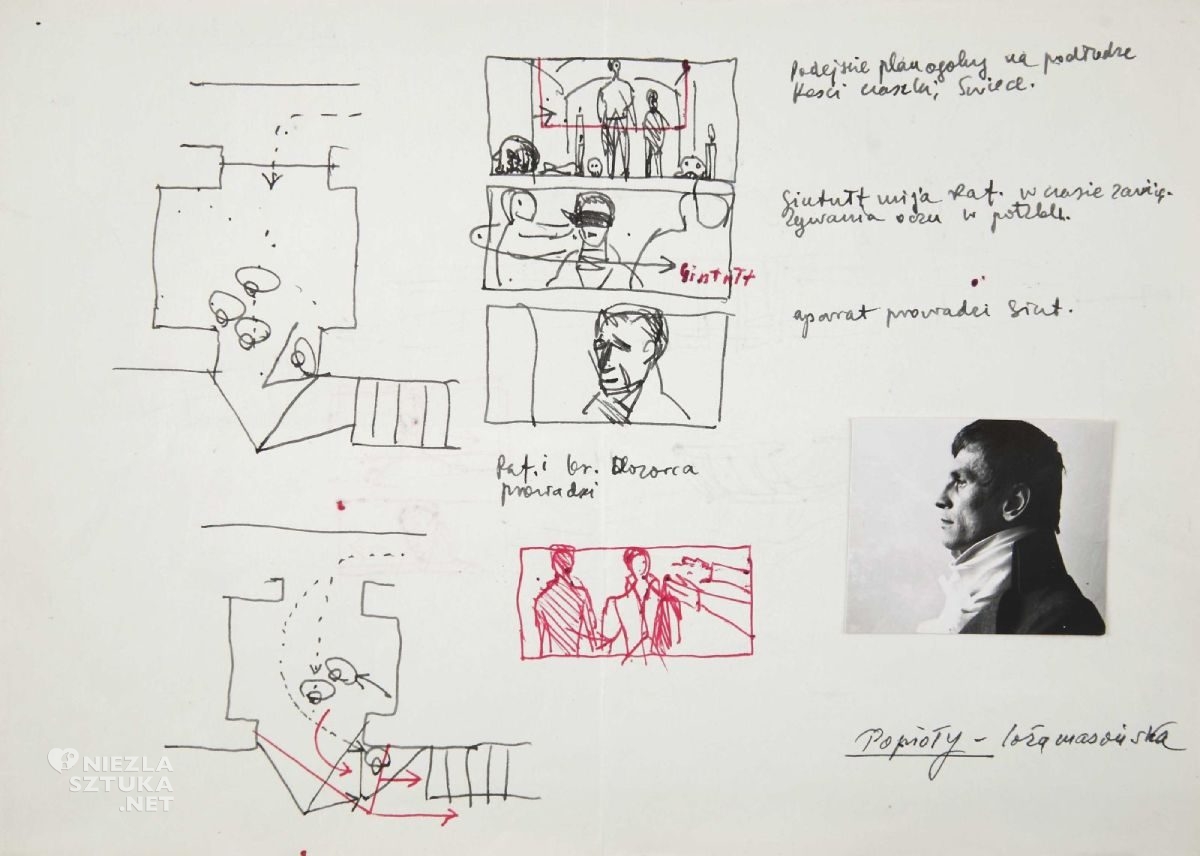 Podejście plan ogólny na podłodze
Kości czaszki, Świece.
Gintułt mija Raf. w czasie zawią-
zywania oczu w półzbl.
Gintułt
aparat prowadzi Gint.
Raf. i br. Dozorca
prowadzi
Popioły - loża masońska
NIEZŁA
SZTUKA
.NET